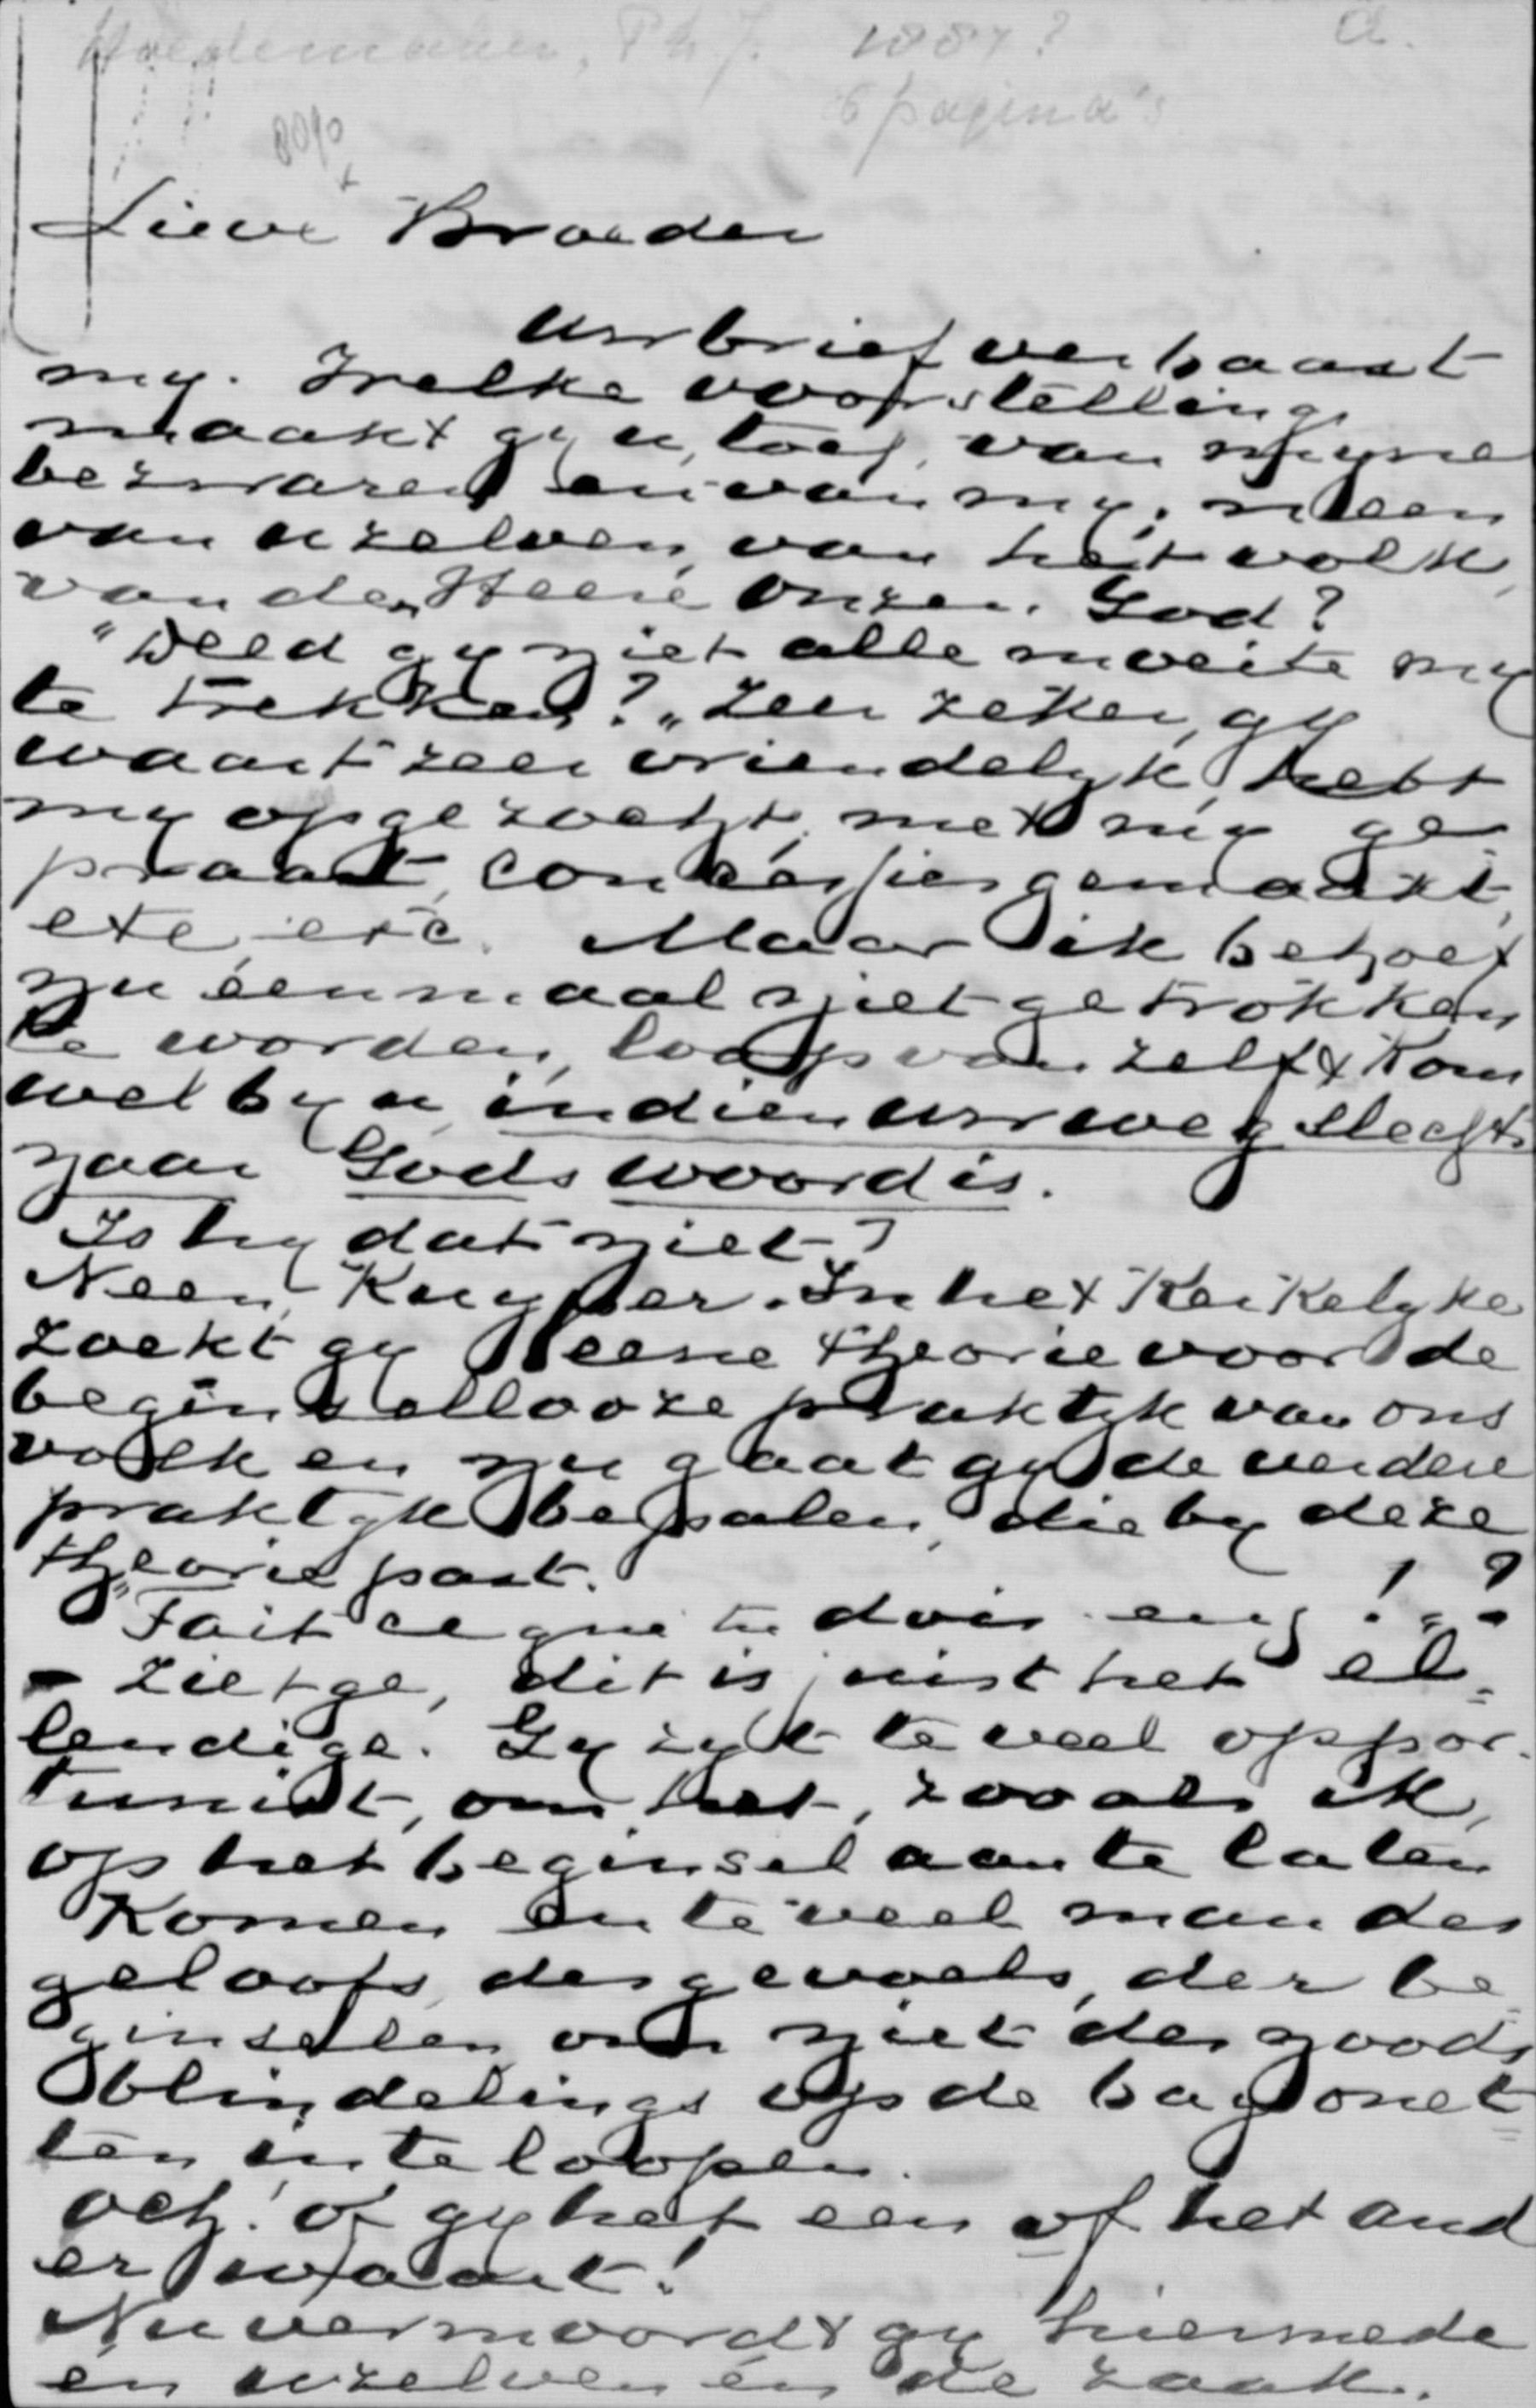 Hoedemaker, Ph. J. 1887? a.
6 pagina's
Lieve Broeder
Uw brief verbaast
my. Welke voorstelling
maakt gy u, toch, van myne
bezwaren en van my; neen
van uzelven, van het volk,
van den Heere onzen God?
"Deed gy niet alle moeite my
te trekken?" Zeer zeker, gy
waart zeer vriendelyk, hebt
my opgezocht, met my ge
praat, concessies gemaakt,
etc, etc. Maar ik behoef
nu eenmaal niet getrokken
te worden, loop van zelf & kom
wel by u, indien uw weg slechts
naar Gods woord is.
Is hy dat niet?
Neen, Kuyper. In het Kerkelyke
zoekt gy eene theorie voor de
beginsellooze praktyk van ons
volk en nu gaat gy de verdere
praktyk bepalen, die by deze
theorie past.
"Fait ce que tu dois enz!"?
- Ziet ge, dit is juist het el=
lendige. Gy zyt te veel oppor-
tunist, om het, zooals ik,
op het beginsel aan te laten
komen en te veel man des
geloofs, des gevoels, der be
ginselen om niet des noods
blindelings op de bayonet=
ten in te loopen.
Och! of gy het een of het and
er waart!
Nu vermoordt gy hiermede
én uzelven én de zaak.